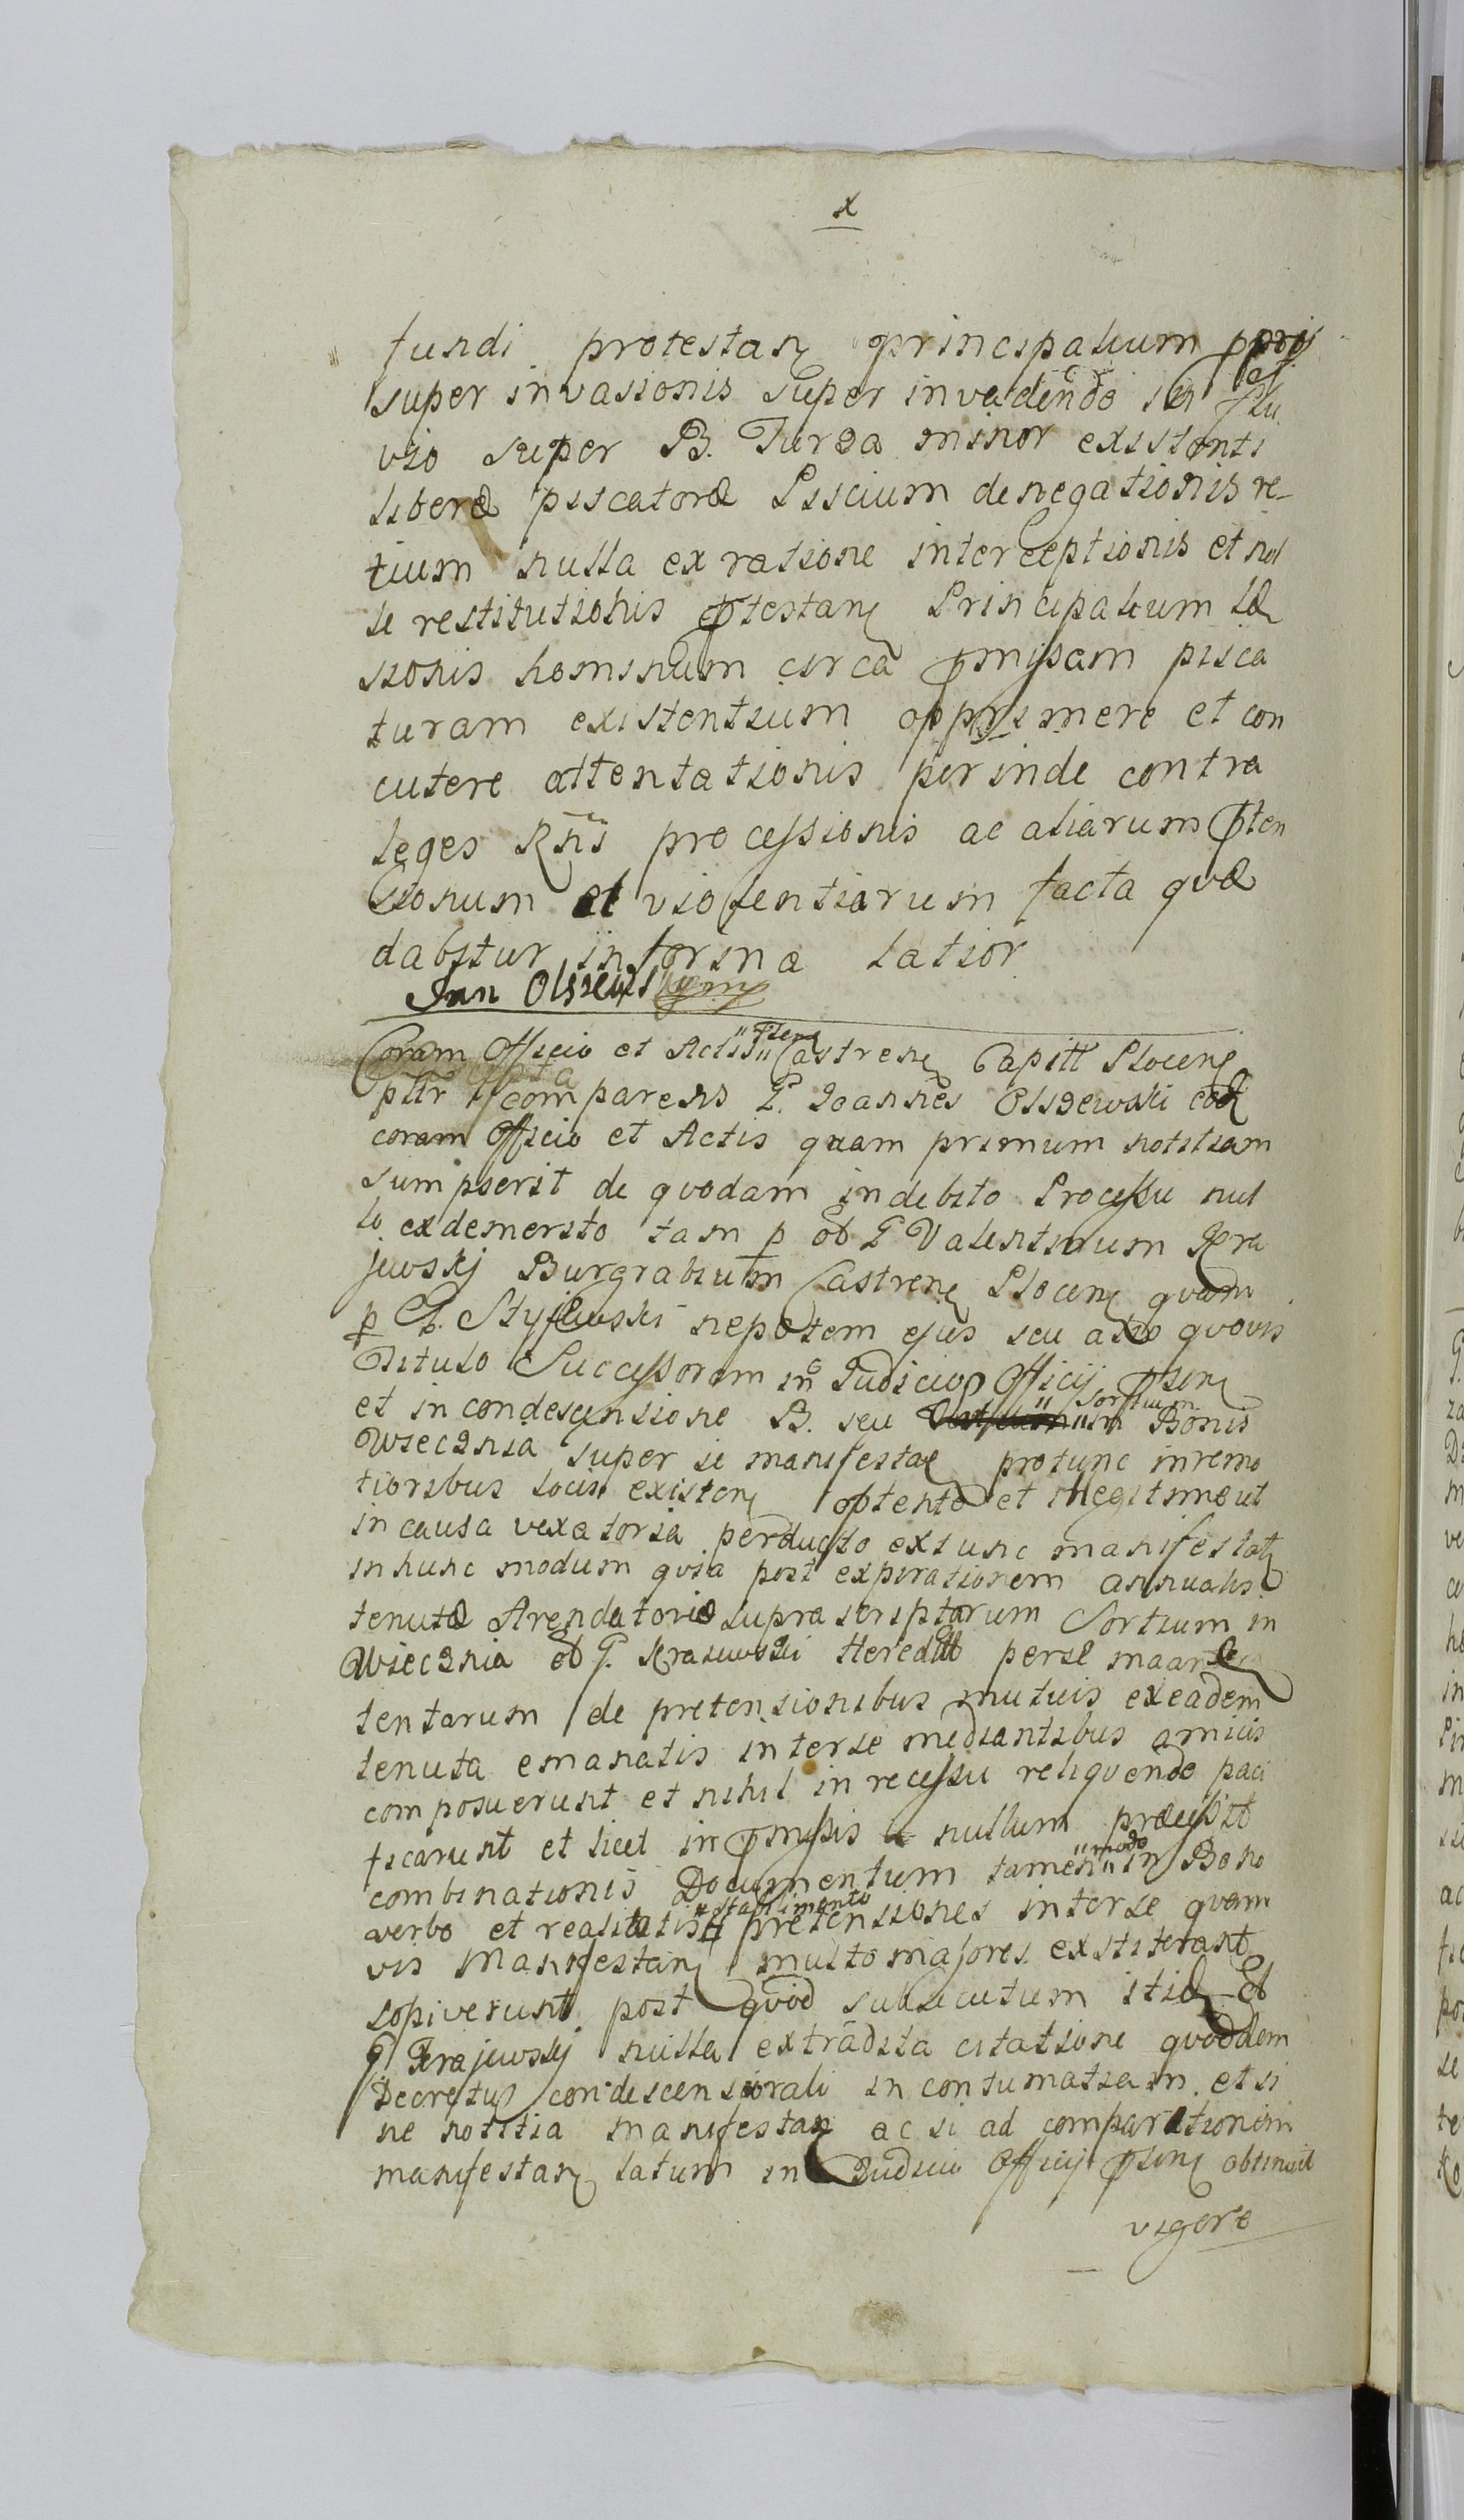 x
fundi protestan principalium pprij
super invasionis super invadendo in Flu
vio super B. Turza minor existenti
liberæ piscatoræ Piscium denegationis re-
tium nulla ex ratione interceptionis et nul
le restitutionis ptestan Principalium læ
sionis hominum circa pmissam pisca
turam existentium opprimere et con
cutere attentationis perinde contra
leges Rni processionis ac aliarum pten
sionum et violentiarum facta quæ
dabitur in forma latior
Jan Olszewski
Coram Officio et Actis "psen" Castren Capitt Plocen
psltr comparens G. Joannes Olszewski eod
coram Officio et Actis quam primum notitiam
sumpserit de quodam indebito Processu nul
lo exdemerito tam p ob G Valentinum Kra
jewskj Burgrabium Castren Plocen quam
p G. Stryjewski nepotem ejus seu alio quovis
Titulo Successorem in Judicio Officij psen
et in condescensione B. seu "Sortium" in Bonis
Wiecznia super se manifestae protunc inremo
tioribus locis existen obtento et illegitime ut
in causa vexatoria perducto extunc manifestat
inhunc modum quia post expirationem annualis
tenutæ Arendatoriæ supra scriptarum Sortium in
Wiecznia ob G. Krajewski Heredit perse maanse
tentarum de pretensionibus mutuis exeadem
tenuta emanatis interse mediantibus amicis
composuerunt et nihil in recessu reliquendo paci
ficarunt et licet in pmissis nullum præcessit
combinationis Documentum tamen "modo" in Bono
verbo et realitatis "stabilimento" pretensiones interse quam
vis Manifestan multo majores exstiterant
sopiverunt post quod subsecutum itid Ob
G Krajewskj nulla extradita citatione quoddam
Decretum condescensorali in contumatiam et si
ne notitia manifestan ac si ad comparitionem
manifestan latum in Judicio Officij psen obtinuit
vigore